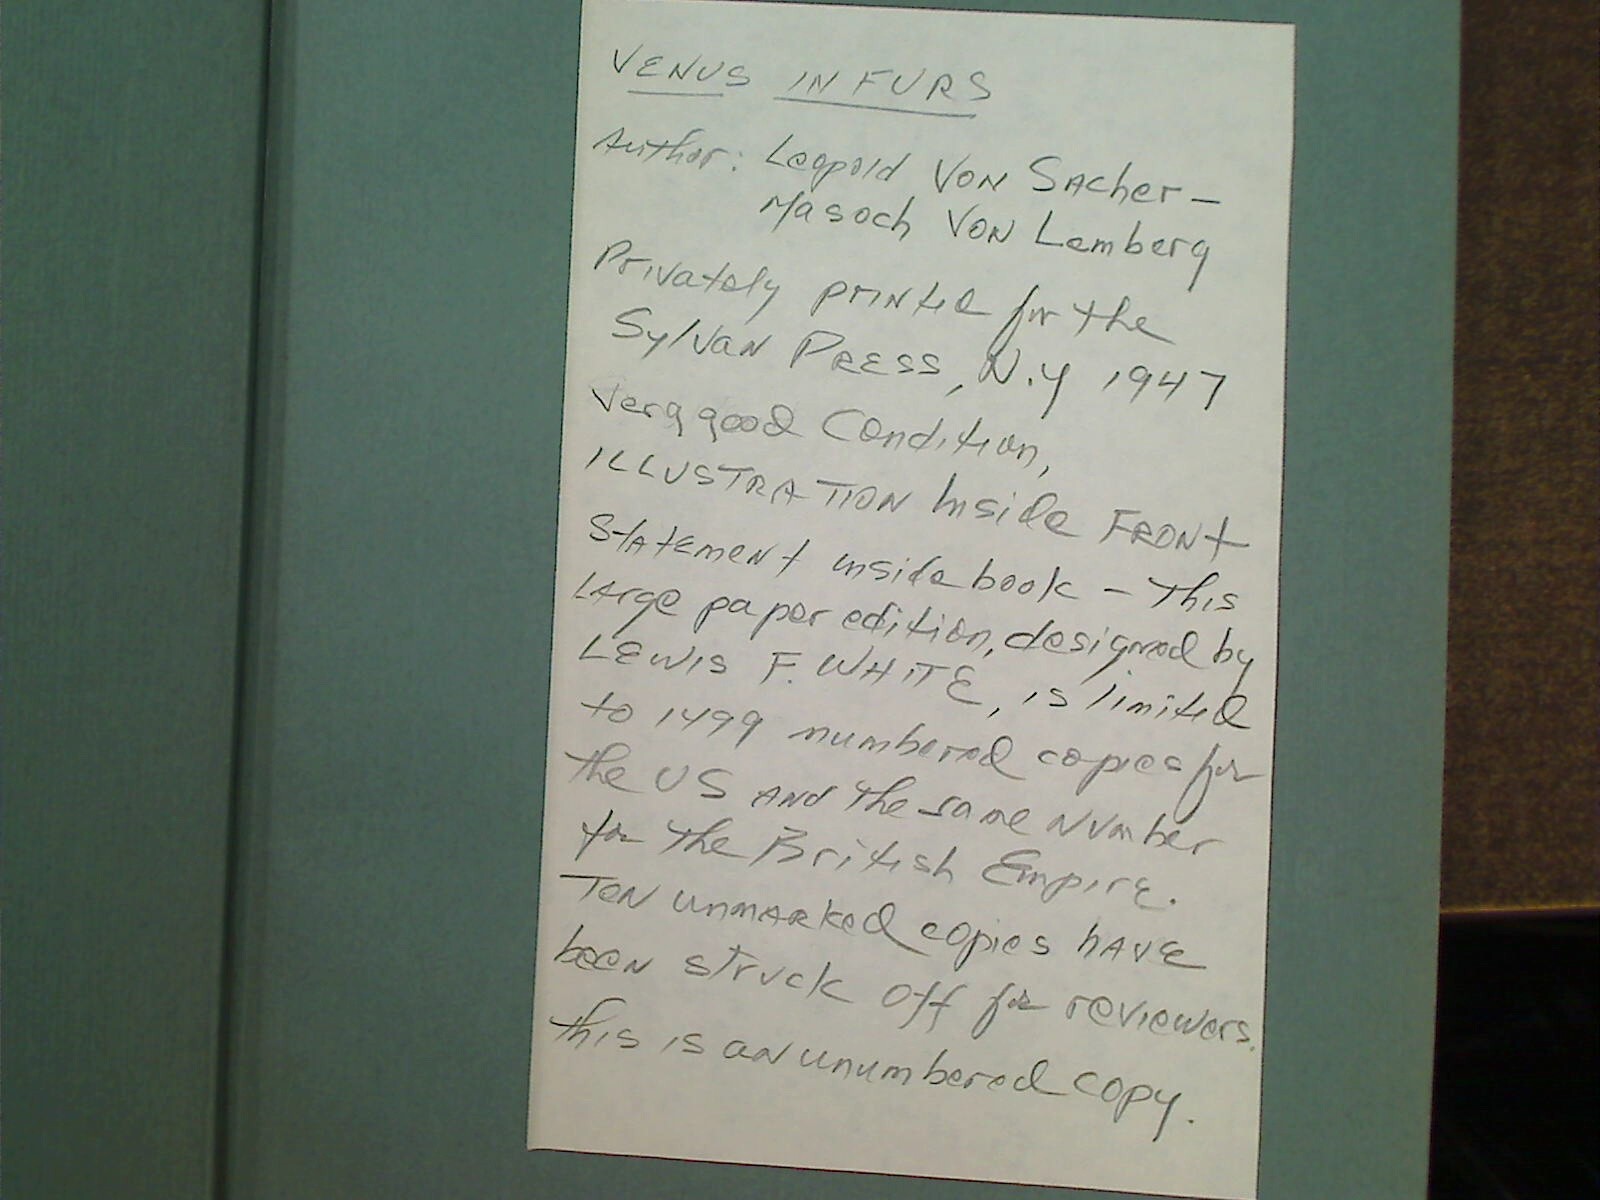 VENUS IN FURS
Author: Leopold VON SAcher-
Masoch VON Lemberg
Privately printed for the
Sylvan PRESS, N.Y 1947
Very good Condition,
ILLUSTRATION Inside FRONT
STATEMENT inside book - This
LArge paper edition, designed by
LEWIS F. WHITE, is limited
to 1499 numbered copies for
the US AND the same NUmber
for the British Empire.
TEN unmARked copies hAVE
been struck off for reviewers.
This is an unumbered copy.